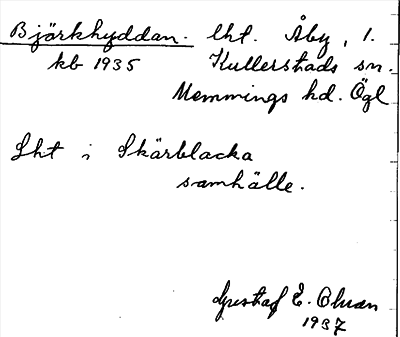 Björkhyddan. lht. Åby, 1.
kb 1935 Kullerstads sn.
Memmings hd. Ögl
Lht i Skärblacka
samhälle.
Gustaf E. Olsson
1937